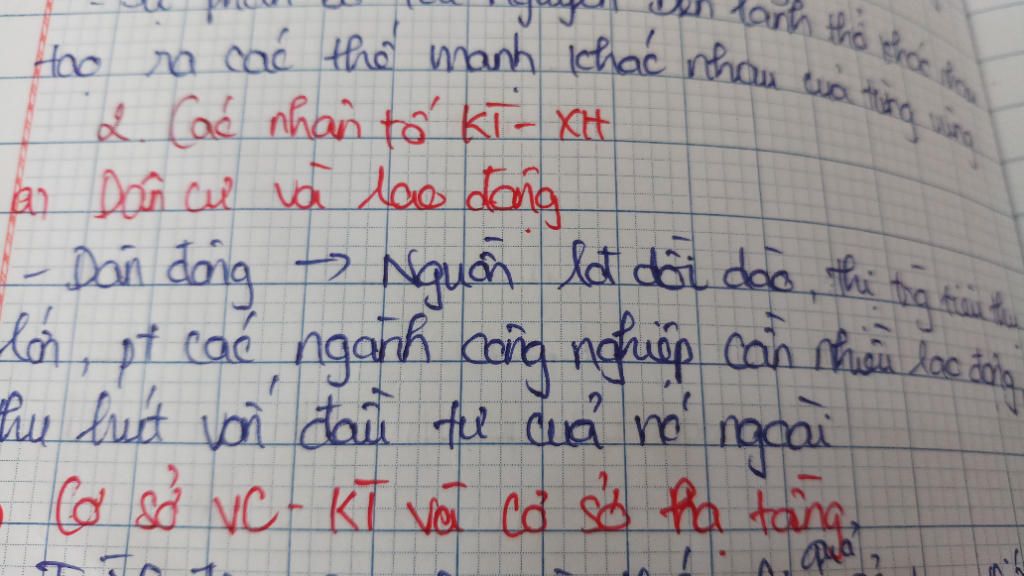 nguyên trên lãnh thổ
tạo ra các thế mạnh khác nhau của từng vùng
2. Các nhân tố KT - XH
a) Dân cư và lao động
- Dân đông → Nguồn lđ dồi dào, thị trg tiêu thụ
lớn, pt các ngành công nghiệp cần nhiều lao động,
thu hút vốn đầu tư của nc ngoài
Cơ sở VC - KT và cơ sở hạ tầng
quả